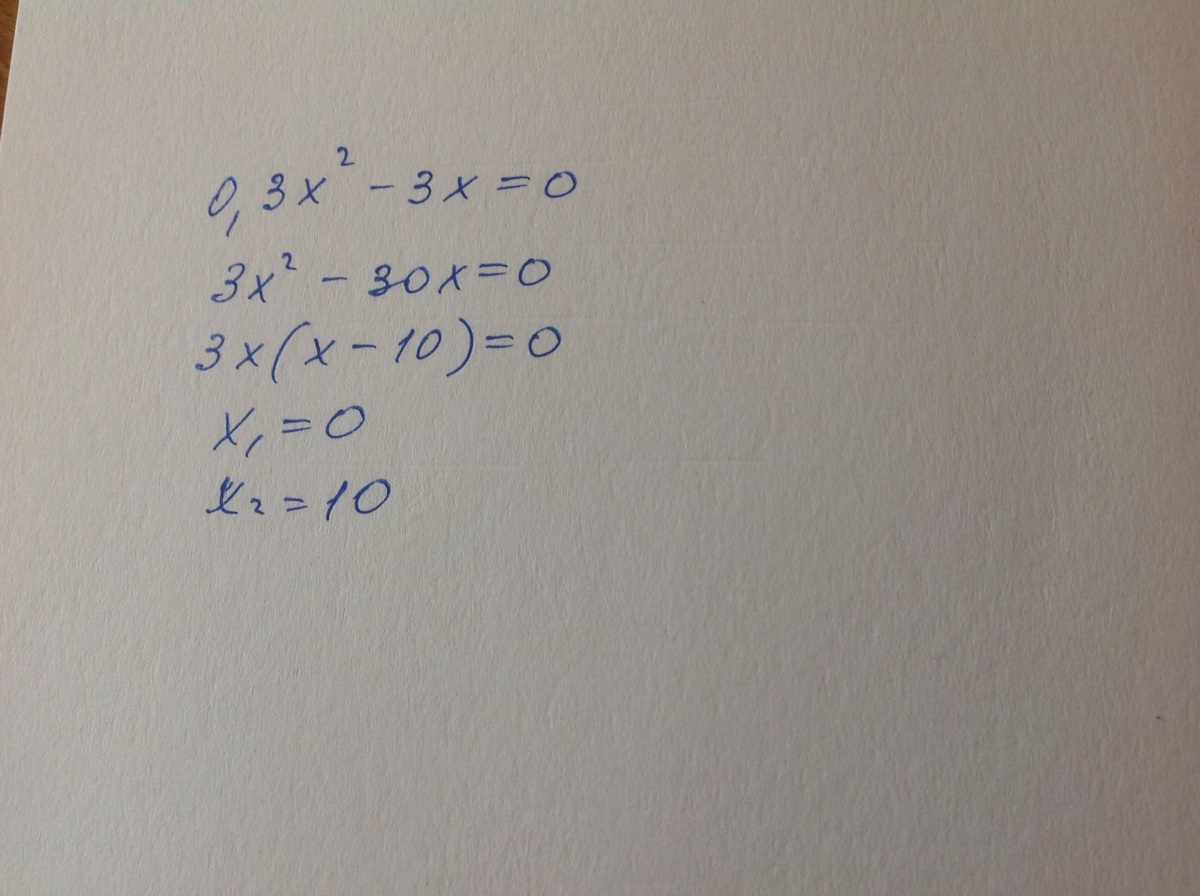 0,3x² - 3x = 0
3x² - 30x = 0
3x(x - 10) = 0
x₁ = 0
x₂ = 10